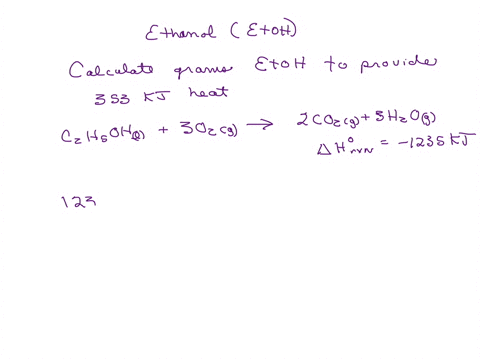 Ethanol (EtOH)
Calculate grams EtOH to provide
353 KJ heat
C₂H₅OH(l) + 3O₂(g) → 2CO₂(g) + 3H₂O(g)
ΔH°rxn = -1235 KJ
123